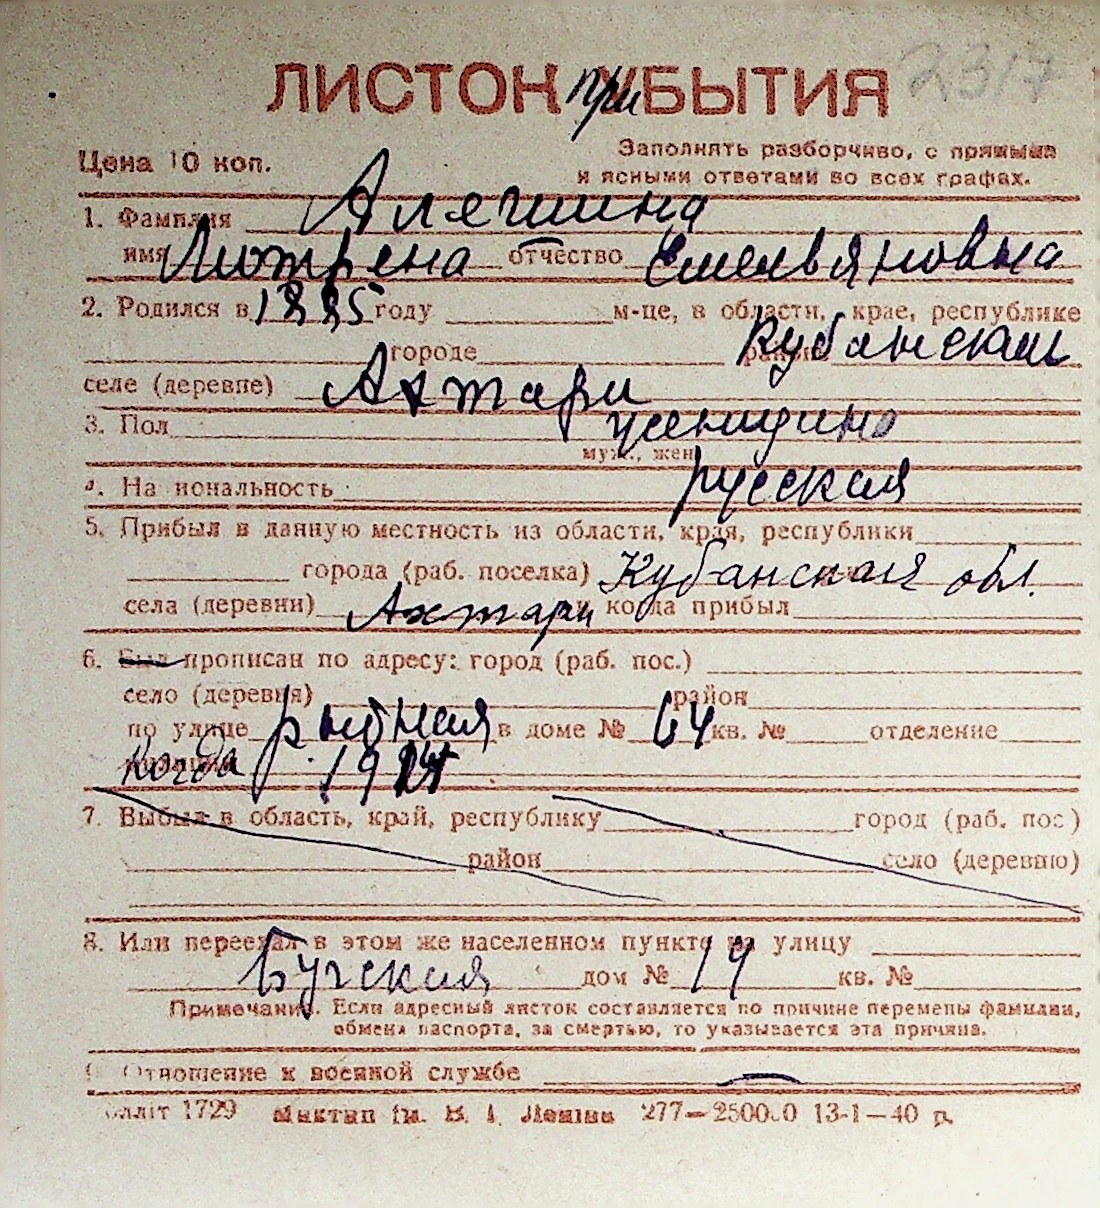 2317
ЛИСТОК при УБЫТИЯ
Цена 10 коп.
Заполнять разборчиво, с прямыми
и ясными ответами во всех графах.
1. Фамилия Алягшина
имя Мотрена отчество Емельяновна
2. Родился в 1885 году м-це, в области, крае, республике
городе районе Кубанская
селе (деревне) Ахтари
3. Пол женщино
муж., жен
На иональность русская
5. Прибыл в данную местность из области, края, республики
города (раб. поселка) Кубанская обл.
села (деревни) Ахтари и когда прибыл
6. Был прописан по адресу: город (раб. пос.)
село (деревня) район
по улице рыбная в доме № 64 кв. № отделение
когда
7. Выбыл в область, край, республику город (раб. пос)
район село (деревню)
8. Или переехал в этом же населенном пункте на улицу
Бугская дом № 19 кв. №
Примечание. Если адресный листок составляется по причине перемены фамилии,
обмена паспорта, за смертью, то указывается эта причина.
Отношение к военной службе —
1729 277—13-1—40 р.